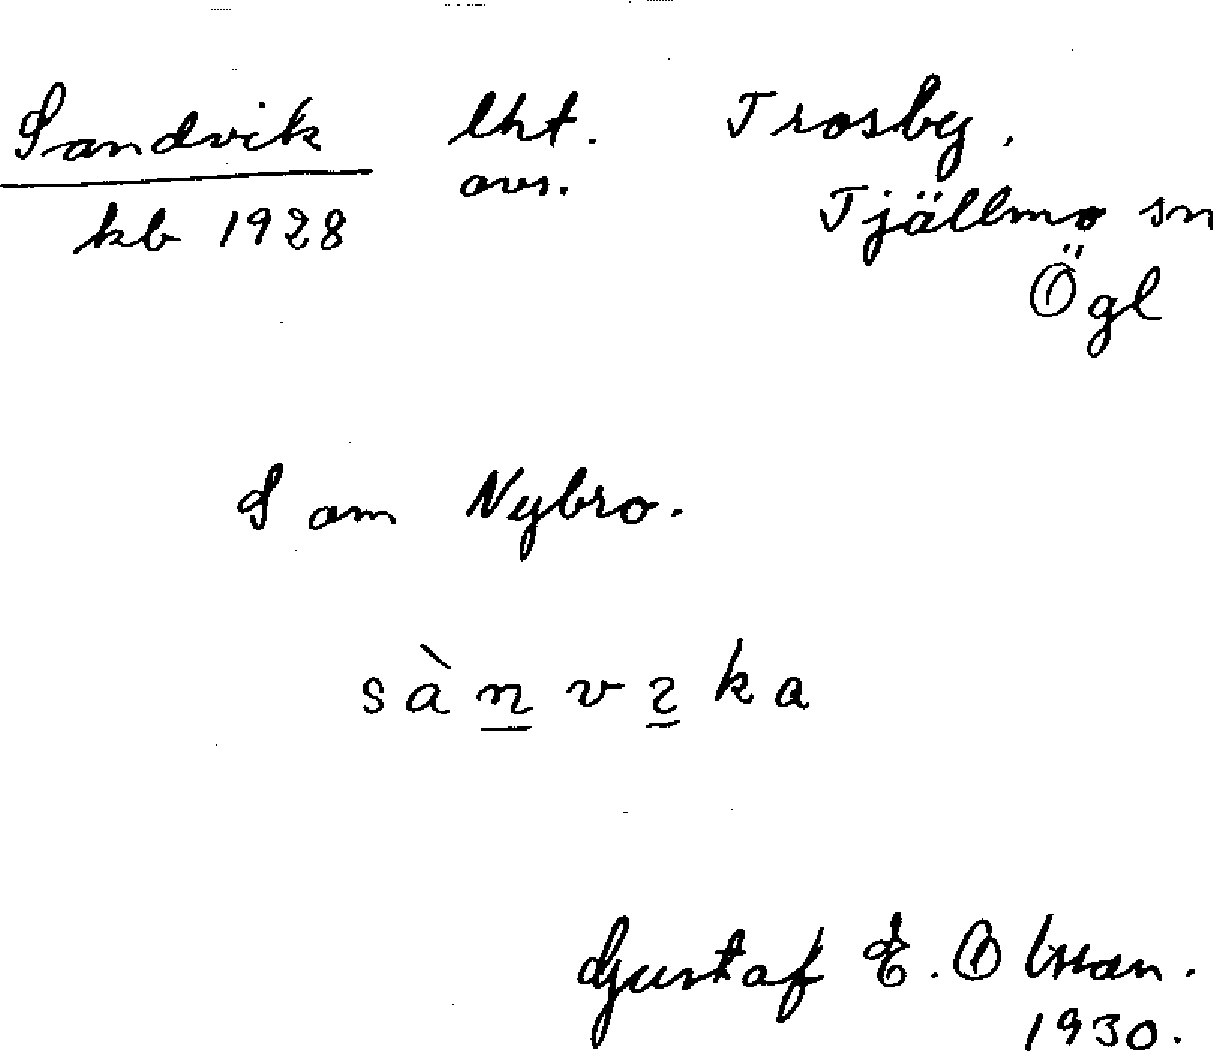 Sandvik lht. Trosby.
avs.
kb 1928 Tjällmo sn
Ögl
S om Nybro.
sànvıka
Gustaf E. Olsson.
1930.